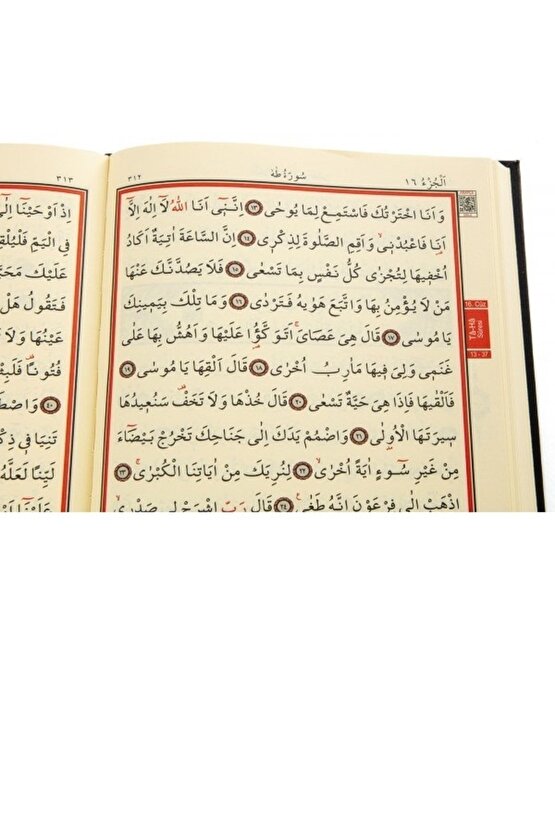 اَلْجُزْءُ ١٦
سُورَةُ طٰهٰ
٣١٢
وَاَنَا اخْتَرْتُكَ فَاسْتَمِعْ لِمَا يُوحٰى ﴿١٣﴾ اِنَّنٖٓى اَنَا اللّٰهُ لَٓا اِلٰهَ اِلَّٓا
اَنَا۬ فَاعْبُدْنٖىۙ وَاَقِمِ الصَّلٰوةَ لِذِكْرٖى ﴿١٤﴾ اِنَّ السَّاعَةَ اٰتِيَةٌ اَكَادُ
اُخْفٖيهَا لِتُجْزٰى كُلُّ نَفْسٍ بِمَا تَسْعٰى ﴿١٥﴾ فَلَا يَصُدَّنَّكَ عَنْهَا
مَنْ لَا يُؤْمِنُ بِهَا وَاتَّبَعَ هَوٰيهُ فَتَرْدٰى ﴿١٦﴾ وَمَا تِلْكَ بِيَمٖينِكَ
يَا مُوسٰى ﴿١٧﴾ قَالَ هِىَ عَصَاىَۚ اَتَوَكَّؤُ۬ا عَلَيْهَا وَاَهُشُّ بِهَا عَلٰى
غَنَمٖى وَلِىَ فٖيهَا مَاٰرِبُ اُخْرٰى ﴿١٨﴾ قَالَ اَلْقِهَا يَا مُوسٰى ﴿١٩﴾
فَاَلْقٰيهَا فَاِذَا هِىَ حَيَّةٌ تَسْعٰى ﴿٢٠﴾ قَالَ خُذْهَا وَلَا تَخَفْ۠ سَنُعٖيدُهَا
سٖيرَتَهَا الْاُو۫لٰى ﴿٢١﴾ وَاضْمُمْ يَدَكَ اِلٰى جَنَاحِكَ تَخْرُجْ بَيْضَٓاءَ
مِنْ غَيْرِ سُٓوءٍ اٰيَةً اُخْرٰىۙ ﴿٢٢﴾ لِنُرِيَكَ مِنْ اٰيَاتِنَا الْكُبْرٰىۚ ﴿٢٣﴾
اِذْهَبْ اِلٰى فِرْعَوْنَ اِنَّهُ طَغٰى ﴿٢٤﴾ قَالَ رَبِّ اشْرَحْ لٖى صَدْرٖىۙ
16. Cüz
Tâ-Hâ
Sûresi
13 - 37
٣١٣
اِذْ اَوْحَيْنَٓا اِلٰٓى
فِى الْيَمِّ فَلْيُلْقِ
عَلَيْكَ مَحَبَّ
فَتَقُولُ هَلْ
عَيْنُهَا وَلَا
فُتُونًا۠ فَلَبِثْ
﴿٤٠﴾ وَاصْطَ
تَنِيَا فٖى ذِكْ
لَيِّنًا لَعَلَّهُ